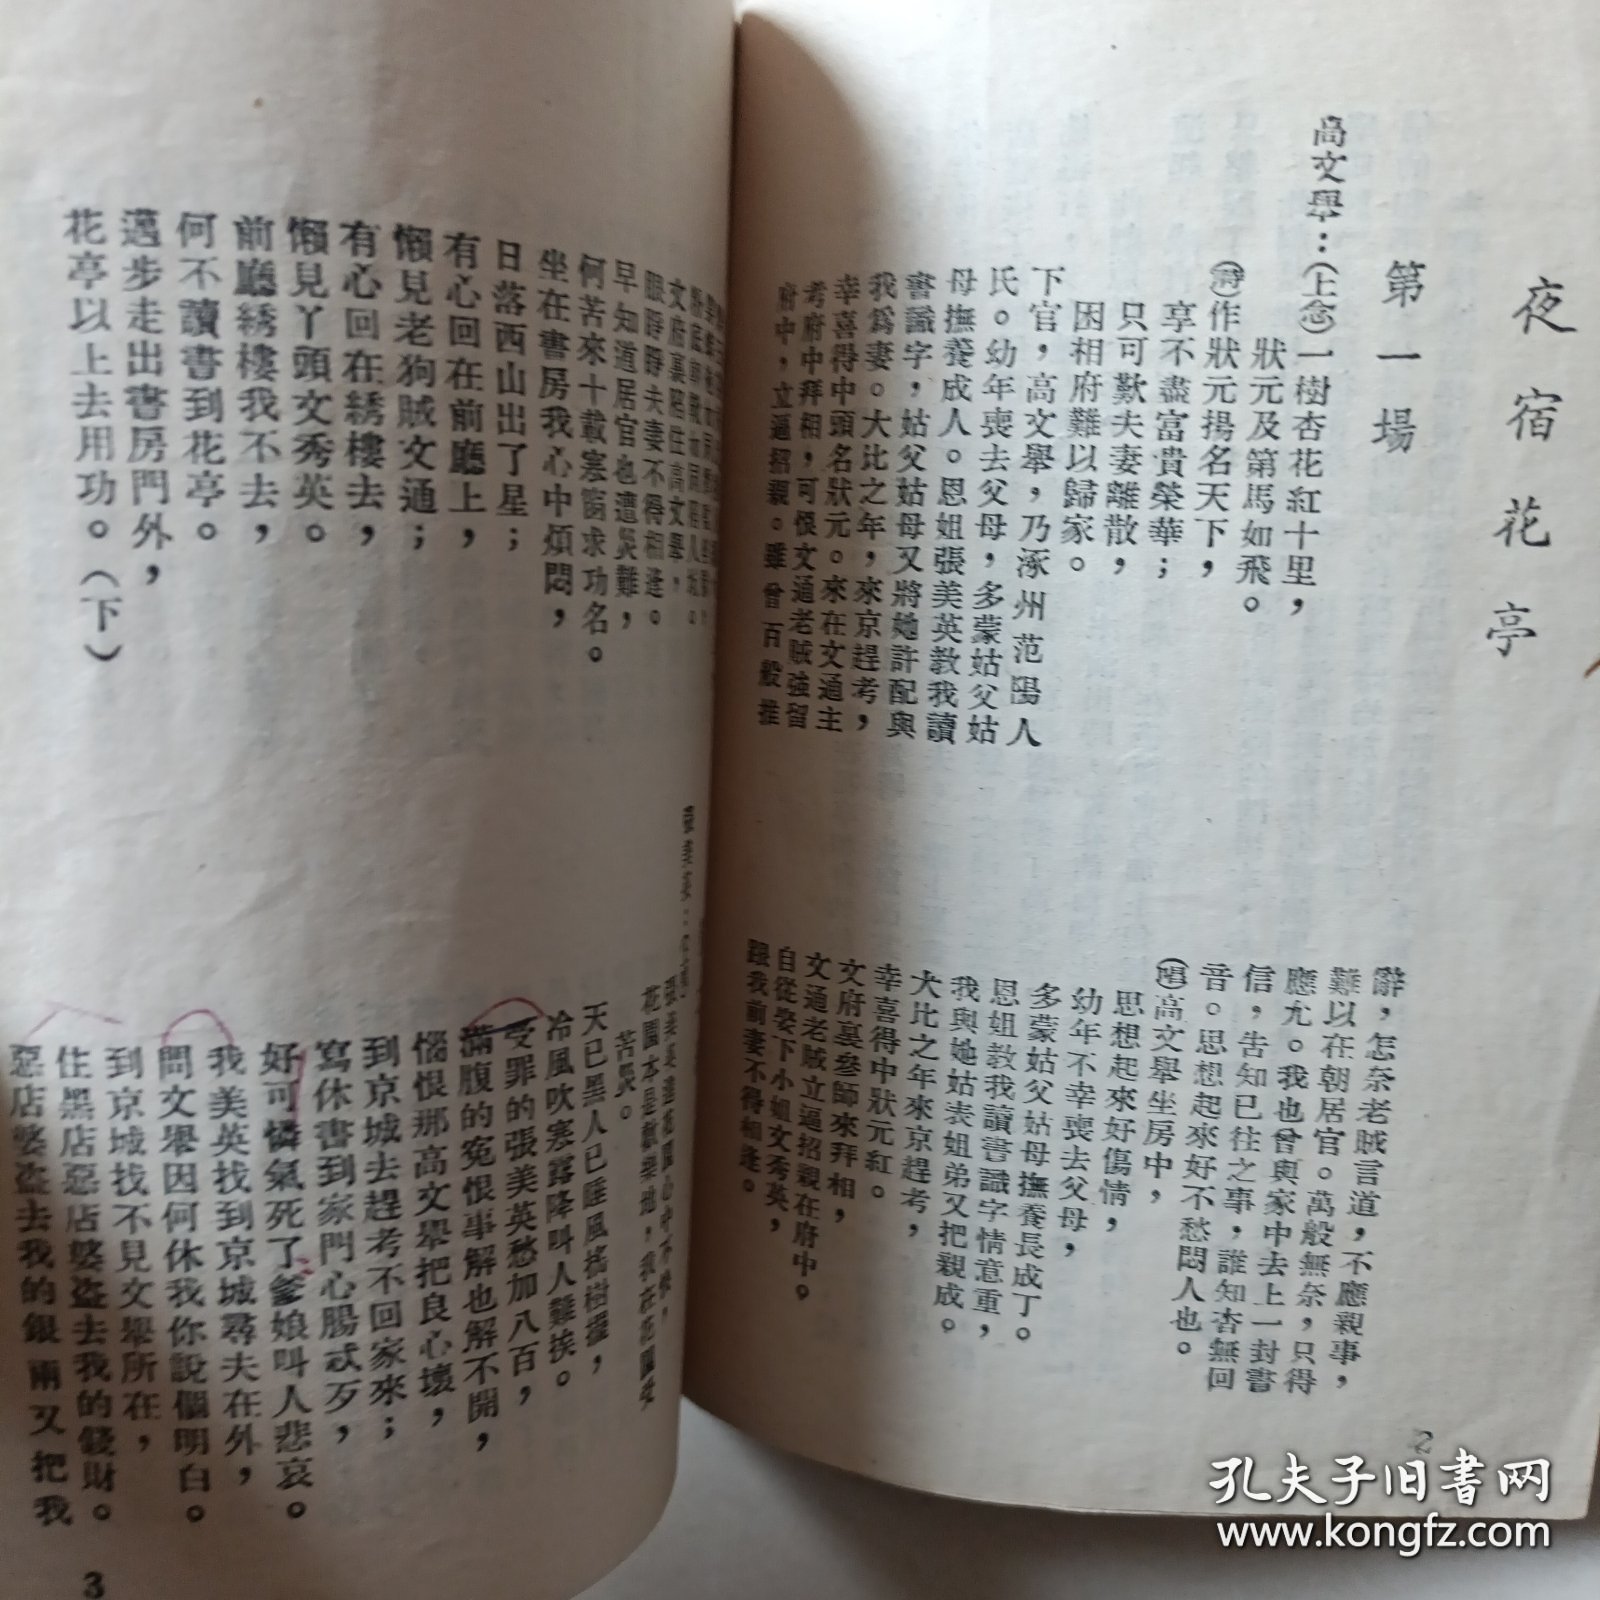 夜宿花亭
第一場
高文舉：(上念)一樹杏花紅十里，
狀元及第馬如飛。
(詩)作狀元揚名天下，
享不盡富貴榮華；
只可歎夫妻離散，
困相府難以歸家。
下官，高文舉，乃涿州范陽人
氏。幼年喪去父母，多蒙姑父姑
母撫養成人。恩姐張美英教我讀
書識字，姑父姑母又將她許配與
我爲妻。大比之年，來京趕考，
幸喜得中頭名狀元。來在文通主
考府中拜相，可恨文通老賊強留
府中，立逼招親。雖曾百般推
辭，怎奈老賊言道，不應親事，
難以在朝居官。萬般無奈，只得
應允。我也曾與家中去上一封書
信，告知已往之事，誰知杳無回
音。思想起來好不愁悶人也。
(唱)高文舉坐房中，
思想起來好傷情，
幼年不幸喪去父母，
多蒙姑父姑母撫養長成丁。
恩姐教我讀書識字情意重，
我與她姑表姐弟又把親成。
大比之年來京趕考，
幸喜得中狀元紅。
文府裏參師來拜相，
文通老賊立逼招親在府中。
自從娶下小姐文秀英，
跟我前妻不得相逢。
2
文府裏陷住高文舉，
眼睜睜夫妻不得相逢。
早知道居官也遭災難，
何苦來十載寒窗求功名。
坐在書房我心中煩悶，
日落西山出了星；
有心回在前廳上，
懶見老狗賊文通；
有心回在綉樓去，
懶見丫頭文秀英。
前廳綉樓我不去，
何不讀書到花亭。
邁步走出書房門外，
花亭以上去用功。(下)
張美英：
苦哭。
天已黑人已睡風搖樹擺，
冷風吹寒露降叫人難挨。
受罪的張美英愁加八百，
滿腹的冤恨事解也解不開，
惱恨那高文舉把良心壞，
到京城去趕考不回家來；
寫休書到家門心腸忒歹，
好可憐氣死了爹娘叫人悲哀。
我美英找到京城尋夫在外，
問文舉因何休我你說個明白。
到京城找不見文舉所在，
住黑店惡店婆盜去我的錢財。
惡店婆盜去我的銀兩又把我
3
孔夫子旧书网
www.kongfz.com